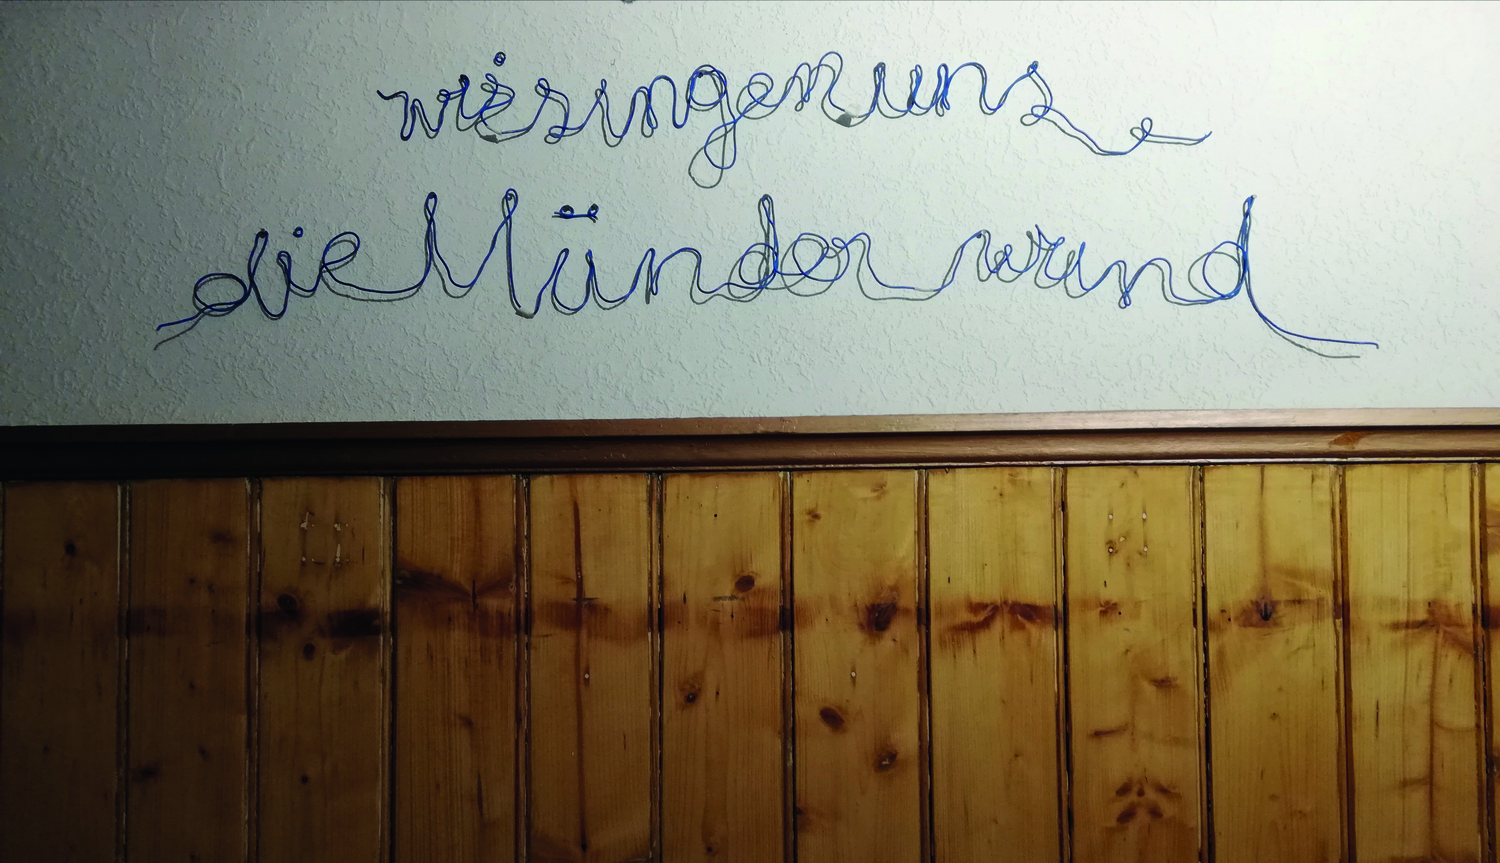 wir singen uns
die Münder wund